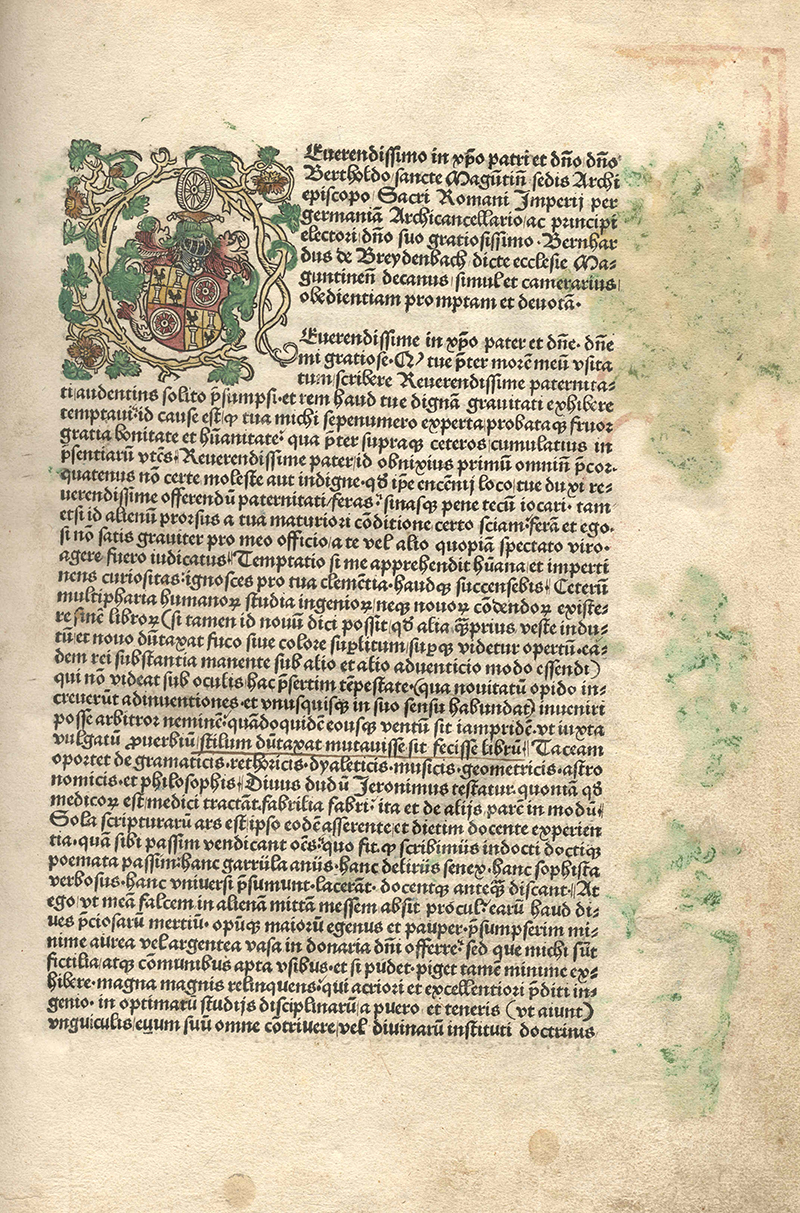 Euerendissimo in xp̄o patri et dño dño
Bertholdo / sancte Magūtiñ sedis Archi
episcopo Sacri Romani Imperij per
germaniā Archicancellario / ac principi
electori / dño suo gratiosissimo · Bernhar
dus de Breydenbach dicte ecclesie Ma⸗
guntineñ decanus / simul et camerarius /
obedientiam promptam et deuotā ·
Euerendissime in xp̄o pater et dñe · dñe
mi gratiose · tue p̄ter morē meū vsita
tum scribere Reuerendissime paternita⸗
ti / audentius solito p̄sumpsi · et rem haud tue dignā grauitati exhibere
temptaui : id cause est / ꝙ tua michi sepenumero experta / probataqꝫ fruor
gratia bonitate et hūanitate : qua p̄ter supraqꝫ ceteros / cumulatius in
p̄sentiarū vtēs · Reuerendissime pater / id obnixius primū omniū p̄cor ·
quatenus nō certe moleste aut indigne · qd̄ ip̄e encenij loco / tue duxi re⸗
uerendissime offerendū paternitati / feras : sinasqꝫ pene tecū iocari · tam
etsi id alienū prorsus a tua maturiori cōditione certo sciam : ferā et ego ·
si nō satis grauiter pro meo officio / a te vel alio quopiā spectato viro ·
agere fuero iudicatus / Temptatio si me apprehendit hūana / et imperti
nens curiositas : ignosces pro tua clemētia · haudqꝫ succensebis / Ceterū
multipharia humanoꝝ studia ingenioꝝ / neqꝫ nouoꝝ cōdendoꝝ existe⸗
re sine libroꝝ (si tamen id nouū dici possit / qd̄ alia qͣꝫprius veste indu⸗
tū / et nouo dūtaxat fuco siue colore suplitum / videtur opertū · ea⸗
dem rei substantia manente sub alio et alio aduenticio modo essendi)
qui nō videat sub oculis hac p̄sertim tēpestate · (qua nouitatū opido in⸗
creuerūt adinuentiones · et vnusquisqꝫ in suo sensu habundat) inueniri
posse arbitror neminē : quādoquidē eousqꝫ ventū sit iampridē · vt iuxta
vulgatū ꝓuerbiū / stilum dūtaxat mutauisse / sit fecisse librū / Taceam
oportet de gramaticis · rethoricis · dyaleticis · musicis · geometricis · astro
nomicis · et philosophis / Diuus dudū Jeronimus testatur · quoniā qd̄
medicoꝝ est / medici tractāt · fabrilia fabri : ita et de alijs parē in modū /
Sola scripturarū ars est / ipso eodē asserente / et dietim docente experien
tia · quā sibi passim vendicant oēs : quo fit · ꝙ scribimus indocti doctiqꝫ
poemata passim : hanc garrula anus · hanc delirus senex · hanc sophista
verbosus · hanc vniuersi p̄sumunt · lacerāt · docentqꝫ anteqͣꝫ discant / At
ego / vt meā falcem in alienā mittā messem absit procul : earū haud di⸗
ues p̄ciosarū mertiū · opūqꝫ maiorū egenus et pauper · p̄sumpserim mi⸗
nime aurea vel argentea vasa in donaria dñi offerre : sed que michi sūt
fictilia / atqꝫ cōmunibus apta vsibus · et si pudet · piget tamē minime ex⸗
hibere · magna magnis relinquens : qui acriori et excellentiori p̄diti in⸗
genio · in optimarū studijs disciplinarū / a puero et teneris (vt aiunt)
vnguiculis / euum suū omne cōtriuere / vel diuinarū instituti doctrinis